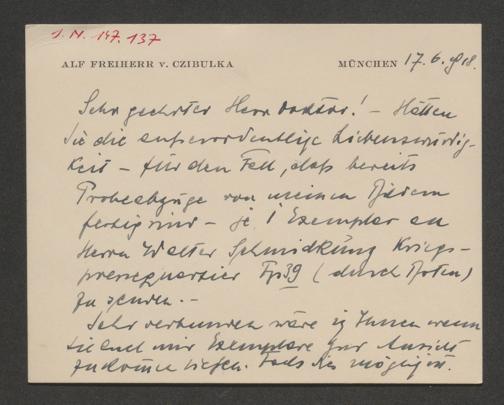 J. N. 147.137
ALF FREIHERR v. CZIBULKA
MÜNCHEN 17. 6. 918.
Sehr geehrter Herr Doktor! – Hätten
Sie die außerordentliche Liebenswürdig-
keit – für den Fall, daß bereits
Probeabzüge von meinen Bildern
fertig sind – je 1 Exemplar an
Herrn Walter Schmidkunz Kriegs-
pressequartier Fp 39 (durch Boten)
zu senden. –
Sehr verbunden wäre ich Ihnen wenn
Sie auch mir Exemplare zur Ansicht
zukommen ließen. Falls dies möglich ist.